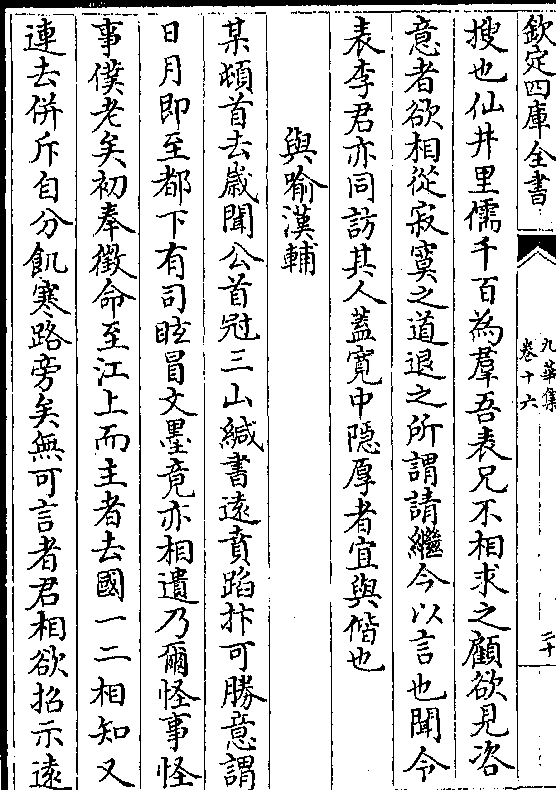 欽定四庫全書
九華集
卷十六
二十
搜也仙井里儒千百為羣吾表兄不相求之顧欲見咨
意者欲相從寂寞之道退之所謂請繼今以言也聞令
表李君亦同訪其人蓋寛中隠厚者宜與偕也
與喻漢輔
某頓首去歲聞公首冠三山緘書遠賁蹈抃可勝意謂
日月即至都下有司眩冒文墨竟亦相遺乃爾怪事怪
事僕老矣初奉徵命至江上而主者去國一二相知又
連去併斥自分飢寒路旁矣無可言者君相欲招示遠